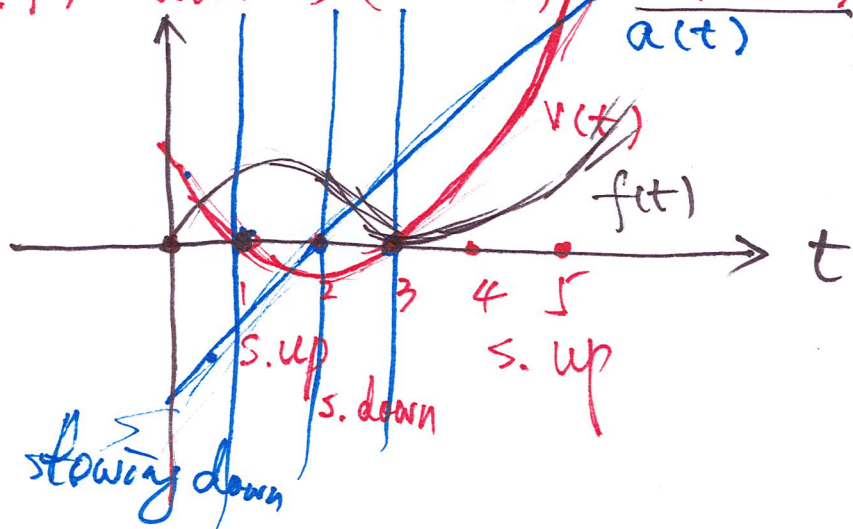 a(t)
v(t)
f(t)
t
1 2 3 4 5
s.up s. up
s. down
slowing down